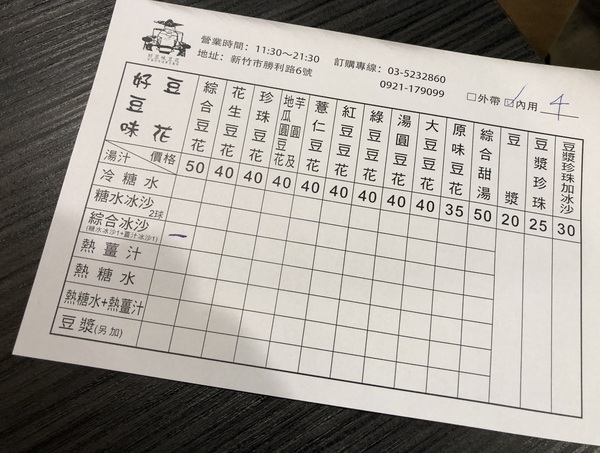 營業時間：11:30～21:30 訂購專線：03-5232860
地址：新竹市勝利路6號 0921-179099
□外帶 ☑內用 4
好豆味 豆花
綜合豆花
花生豆花
珍珠豆花
芋圓地瓜圓及豆花
薏仁豆花
紅豆豆花
綠豆豆花
湯圓豆花
大豆豆花
原味豆花
綜合甜湯
豆漿
豆漿珍珠
豆漿珍珠加冰沙
湯汁 價格 50 40 40 40 40 40 40 40 40 35 50 20 25 30
冷糖水
糖水冰沙 2球
綜合冰沙 一
(糖水冰沙1+薑汁冰沙1)
熱薑汁
熱糖水
熱糖水+熱薑汁
豆漿(另加)